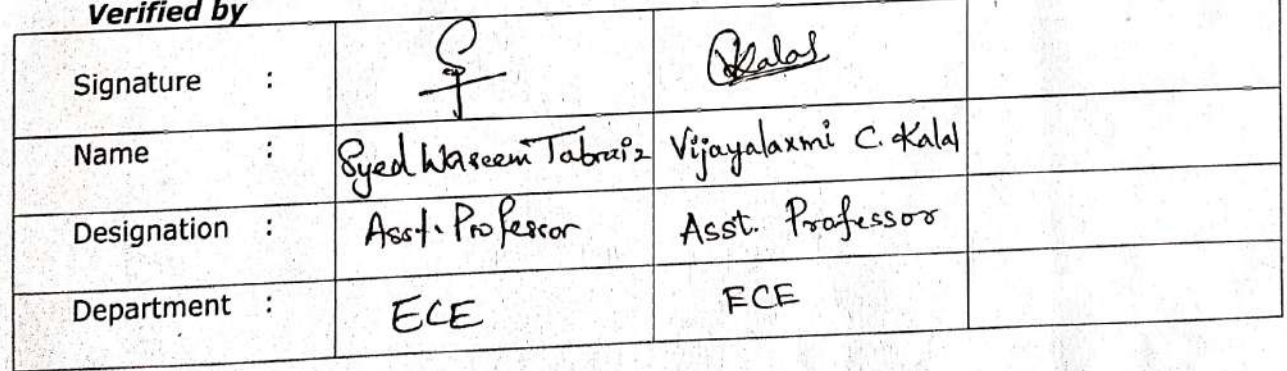 Verified by
Signature : Kalal
Name : Syed Waseem Tabraiz Vijayalaxmi C. Kalal
Designation : Asst. Professor Asst. Professor
Department : ECE ECE